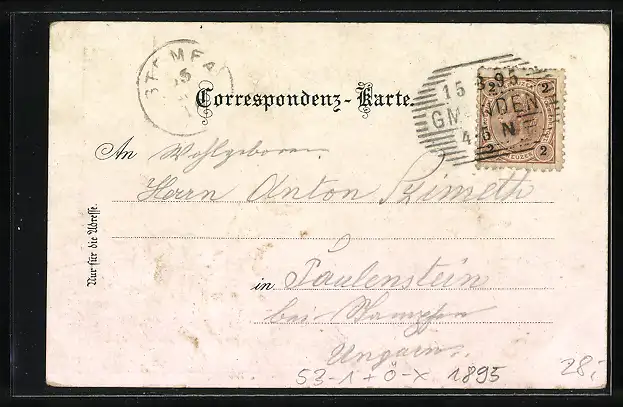 STOMFA
15
15 3 95
GMUNDEN
4-6 N
2 2
2 2
Correspondenz-Karte.
An Wohlgeboren
Herrn Anton
in Paulenstein
bei Stampfen
Ungarn.
Nur für die Adresse.
53-1+Ö-X 1895
28,-